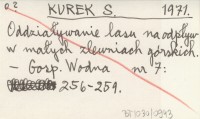 O2 KUREK S. 1971.
Oddziaływanie lasu na odpływ
w małych zlewniach górskich.
- Gosp. Wodna nr 7:
256-259.